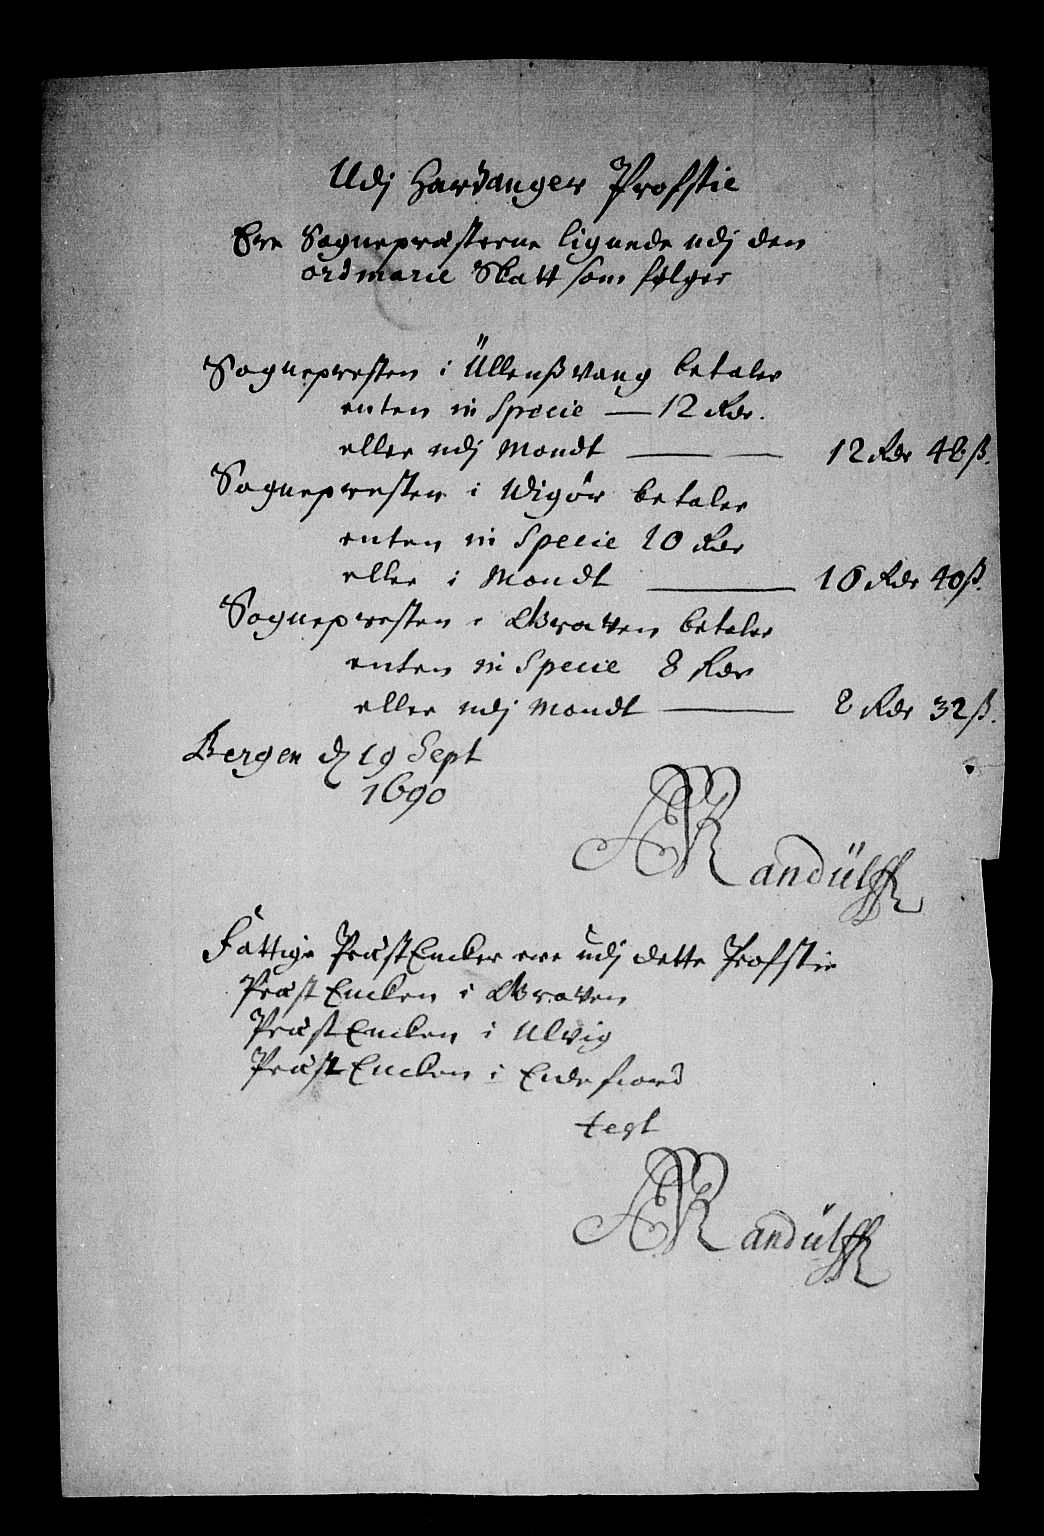 Udj Hardanger Profstie
Ere Sognepræsterne lignede udj den
ordinarie Skatt som følger
Sognepresten i Üllenßvang betaler
enten in Specie — 12 Rdr.
eller udj Mondt — — 12 Rdr 48 ß.
Sognepresten i Wigør betaler
enten in Specie 10 Rdr
eller i Mondt — 10 Rdr 40 ß.
Sognepresten i Graven betaler
enten in Specie 8 Rdr
eller udj Mondt — 8 Rdr 32 ß.
Bergen d 19 Sept
1690
Randülff
Fattige PræstEncker ere udj dette Profstie
Præst Encken i Graven
Præst Encken i Ulvig
Præst Encken i Eidefiord
test
Randülff